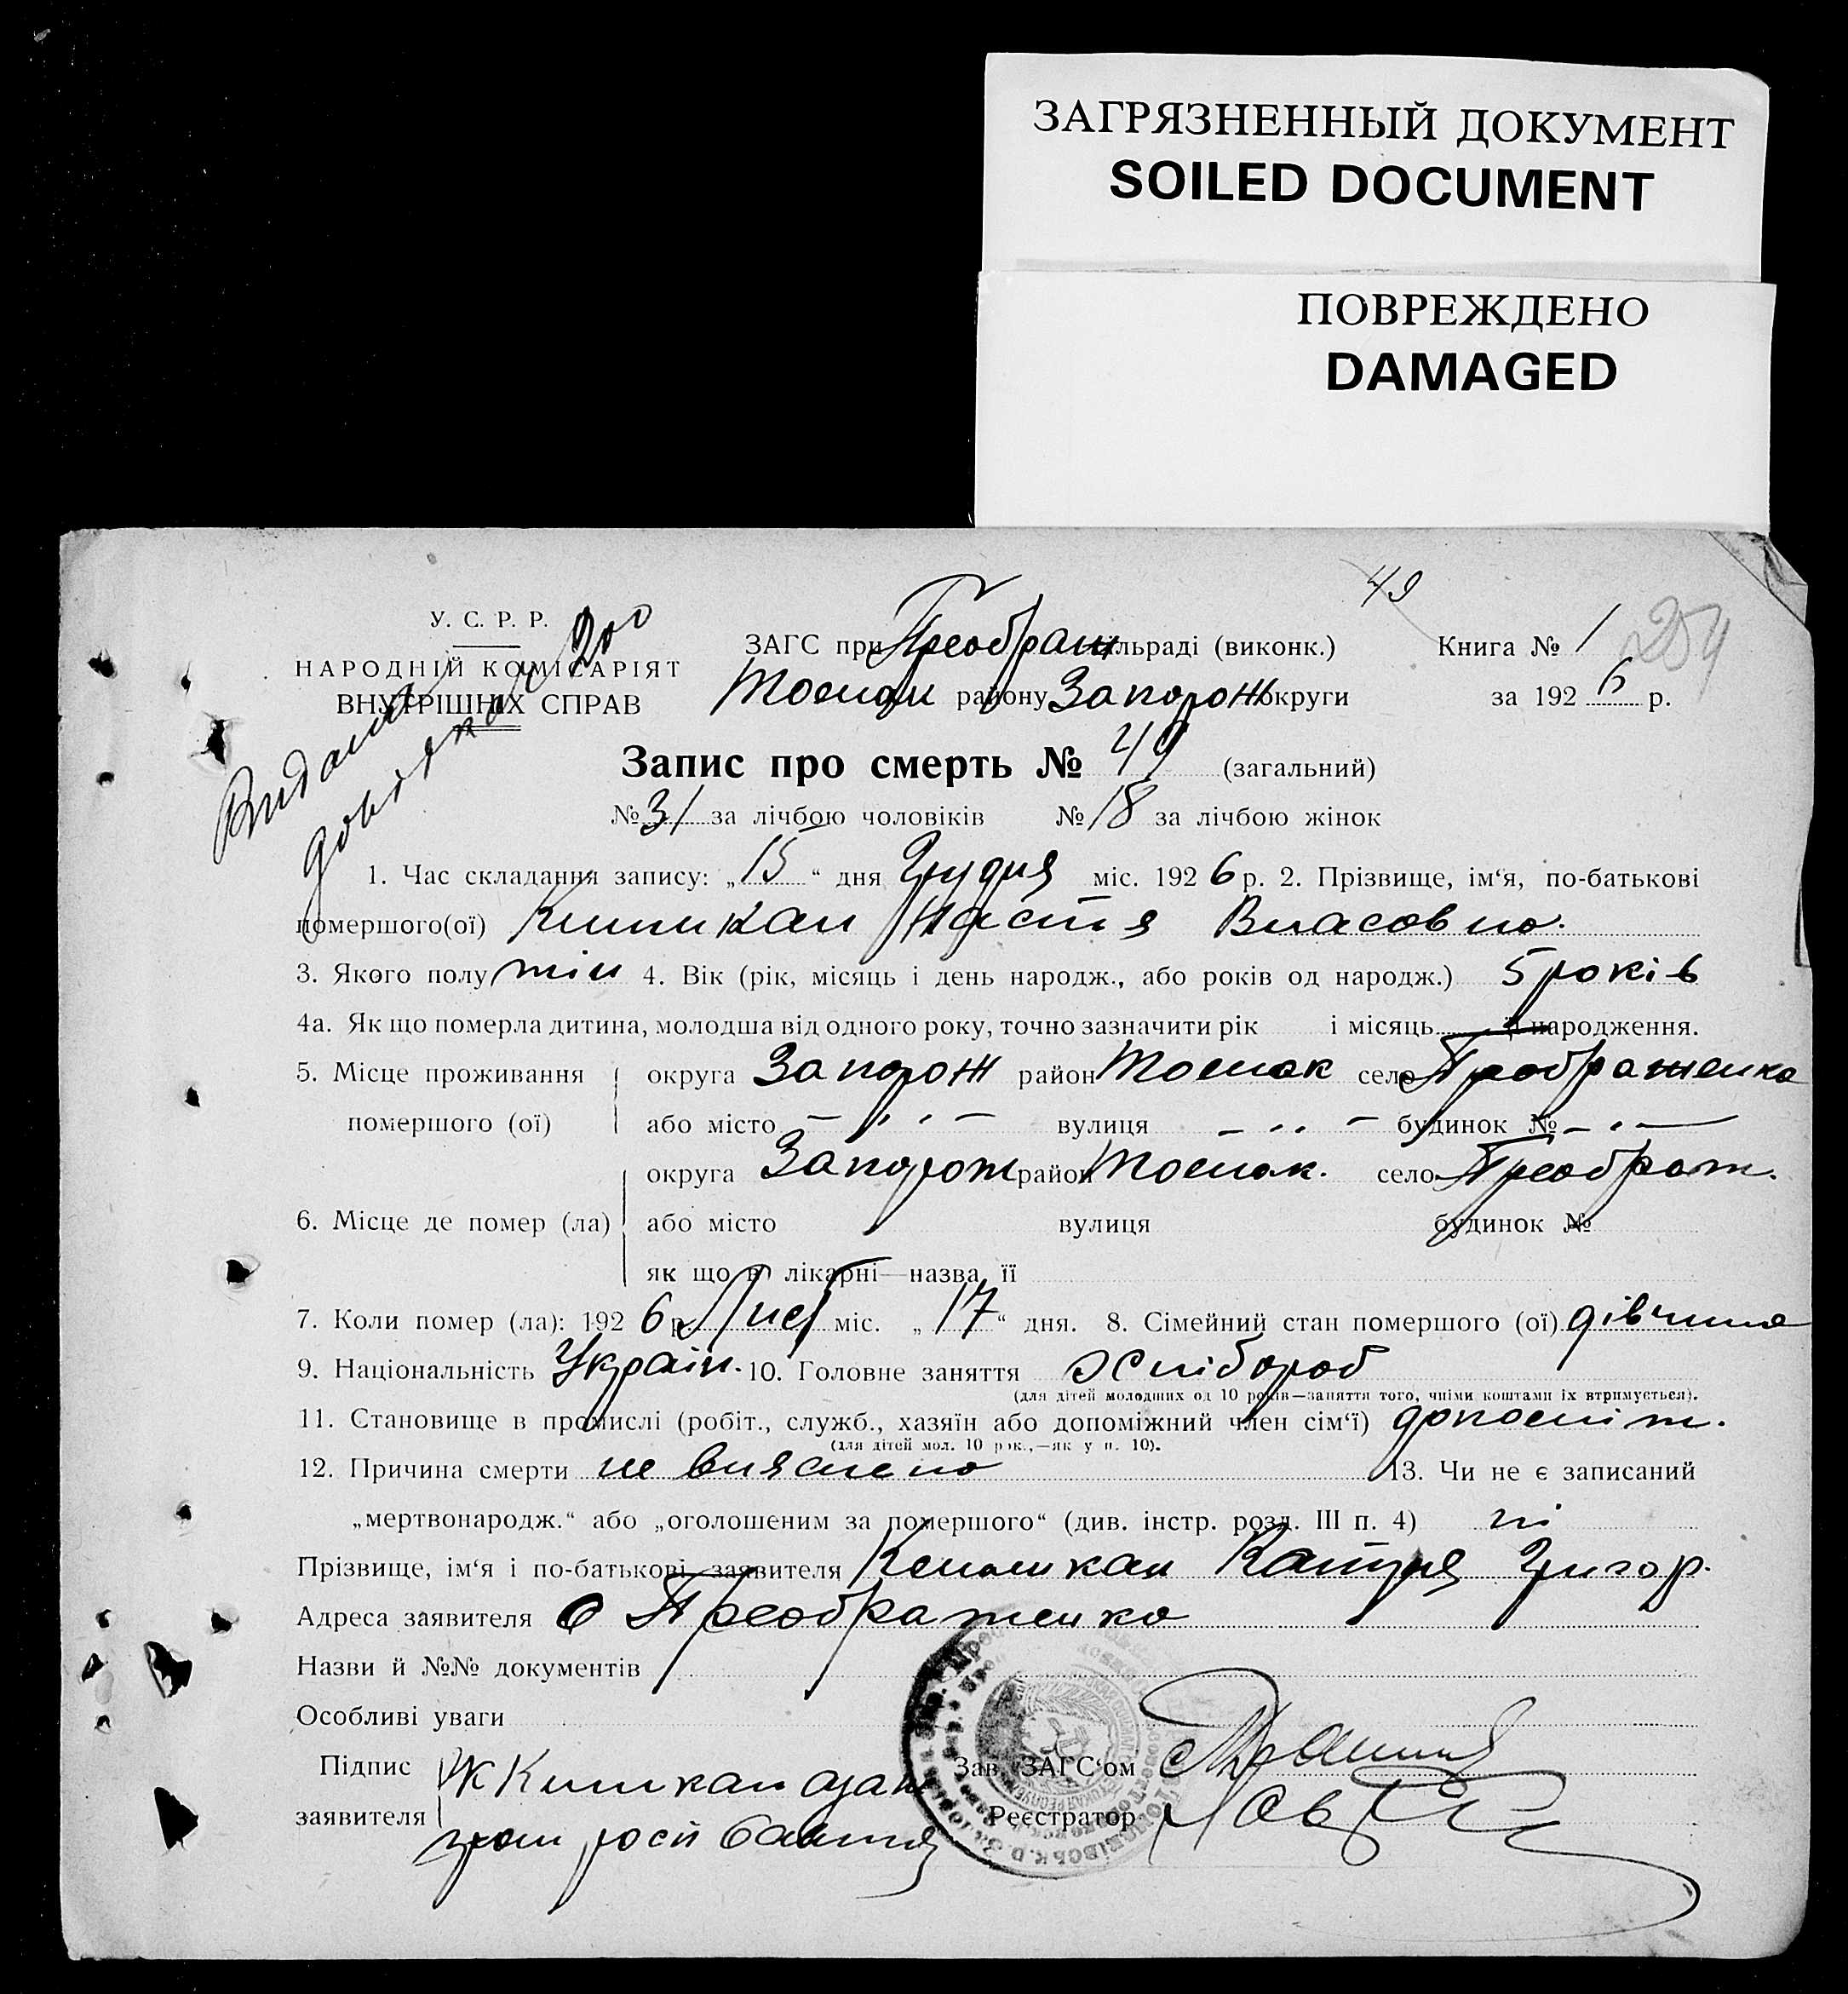 ЗАГРЯЗНЕННЫЙ ДОКУМЕНТ
SOILED DOCUMENT
ПОВРЕЖДЕНО
DAMAGED
49
У. С. Р. Р.
НАРОДНІЙ КОМІСАРІЯТ
ВНУТРІШНІХ СПРАВ
ЗАГС при Преображ сільраді (виконк.)
Книга № 1
254
району Запорож округи
за 1926 р.
Запис про смерть № 49 (загальний)
№ 31 за лічбою чоловіків № 18 за лічбою жінок
1. Час складання запису: „15“ дня Грудня міс. 1926 р. 2. Прізвище, ім‘я, по-батькові
помершого(ої) Настя Власовна.
3. Якого полу жін 4. Вік (рік, місяць і день народж., або років од народж.) 5 років
4а. Як що померла дитина, молодша від одного року, точно зазначити рік і місяць її народження.
5. Місце проживання
помершого (ої)
округа Запорож район Томак село Преображенка
або місто вулиця будинок №
округа Запорож район Томак. село Преображ.
6. Місце де помер (ла)
або місто вулиця будинок №
як що в лікарні—назва її
7. Коли помер (ла): 1926 р. міс. „17“ дня. 8. Сімейний стан помершого (ої) дівчина
9. Національність Україн. 10. Головне заняття хлібороб
(для дітей молодших од 10 років—заняття того, чиїми коштами їх втримується).
11. Становище в промислі (робіт., служб., хазяїн або допоміжний член сім‘ї)
(для дітей мол. 10 рок.,—як у п. 10).
12. Причина смерти не вияснено 13. Чи не є записаний
„мертвонародж.“ або „оголошеним за помершого“ (див. інстр. розд. III п. 4) ні
Прізвище, ім‘я і по-батькові заявителя Катря Григор.
Адреса заявителя с Преображенка
Назви й №№ документів
Особливі уваги
Підпис
заявителя
Зав. ЗАГС‘ом
Реєстратор